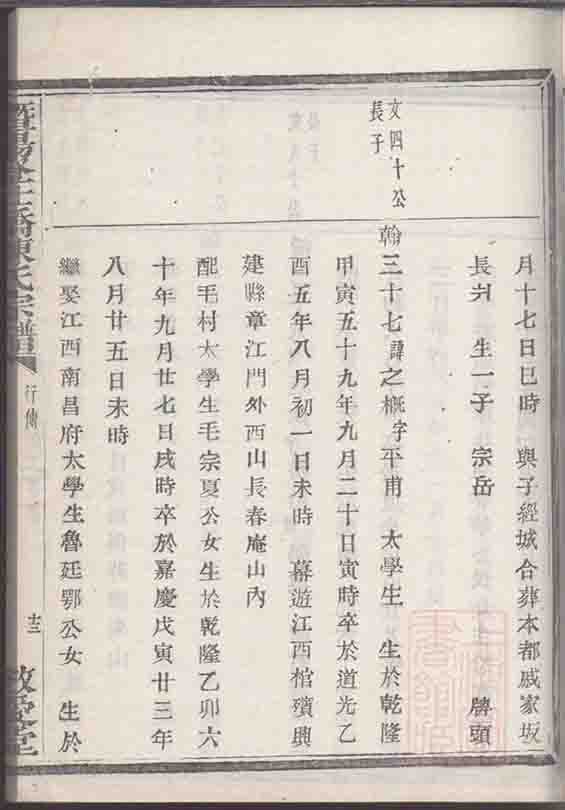 月十七日巳時 與子經城合葬本都戚家坂
長 生一子 宗岳 勝頭
文四十公
長子
翰三十七諱之概字平甫 太學生 生於乾隆
甲寅五十九年九月二十日寅時卒於道光乙
酉五年八月初一日未時 幕遊江西棺殯興
建縣章江門外西山長春庵山內
配毛村太學生毛宗夏公女生於乾隆乙卯六
十年九月廿七日戌時卒於嘉慶戊寅廿三年
八月廿五日未時
繼娶江西南昌府太學生魯廷鄂公女 生於
陳氏宗譜
行傳
敬愛堂